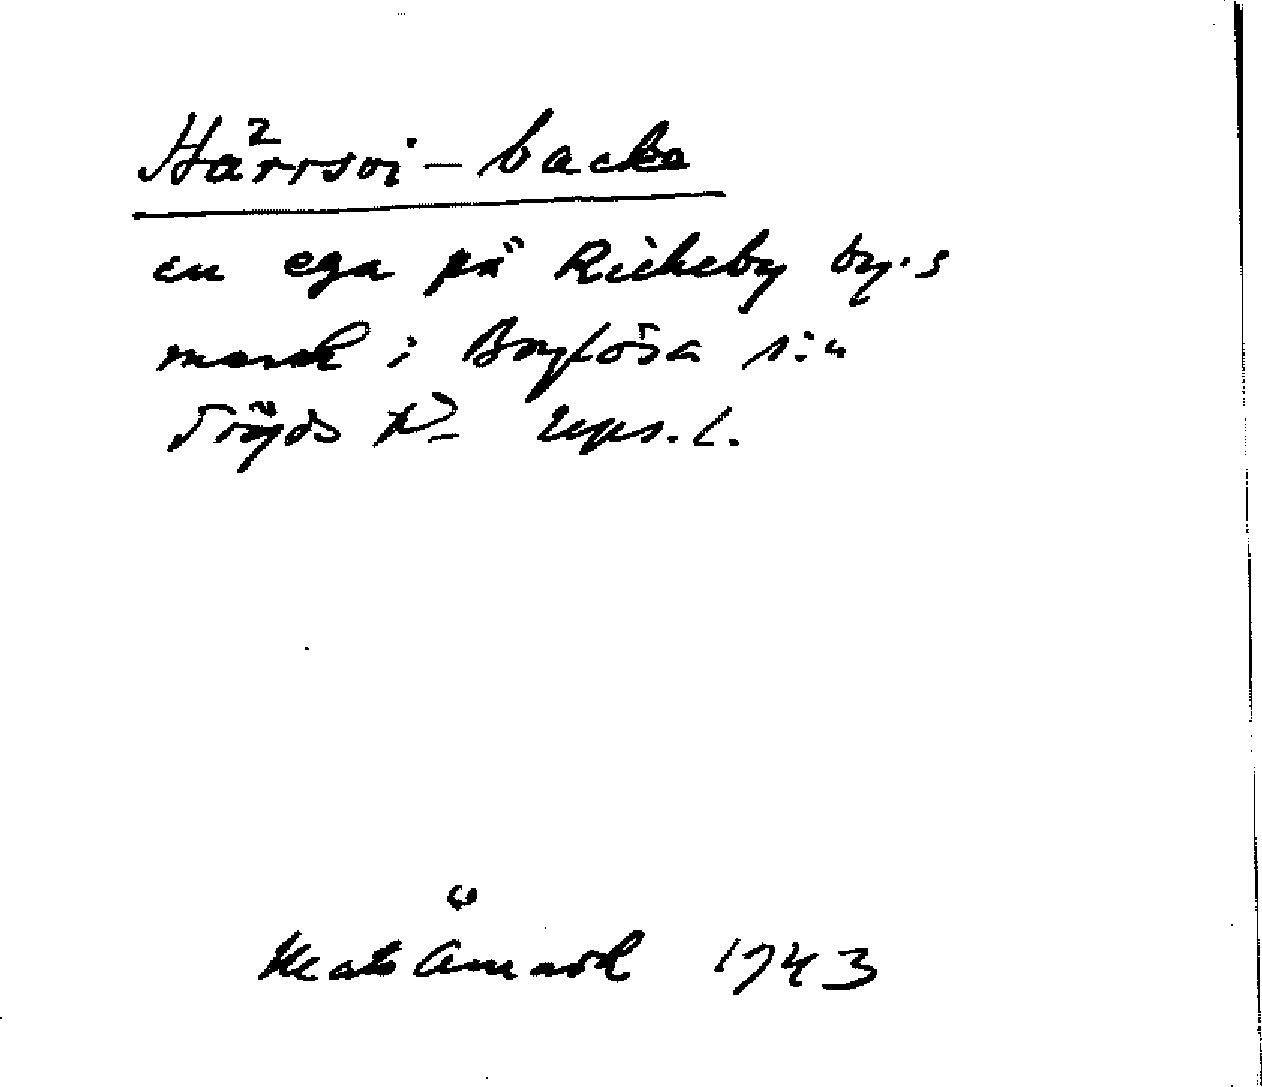 Härrsoi – backa
en ega på Rickeby by.s
mark i Boglösa s:n
Trögds hd. Upps. l.
Mats Åmark 1943